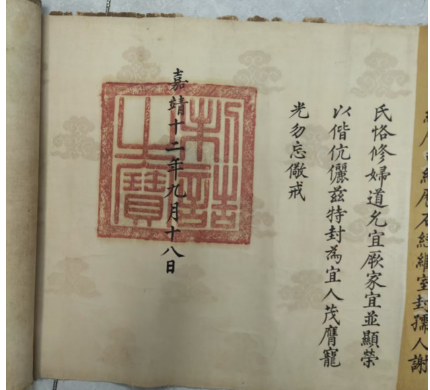 繼室封孺人謝
氏恪修婦道允宜厥家宜並顯榮
以偕伉儷茲特封為宜人茂膺寵
光勿忘儆戒
嘉靖十二年九月十八日
制誥
之寶